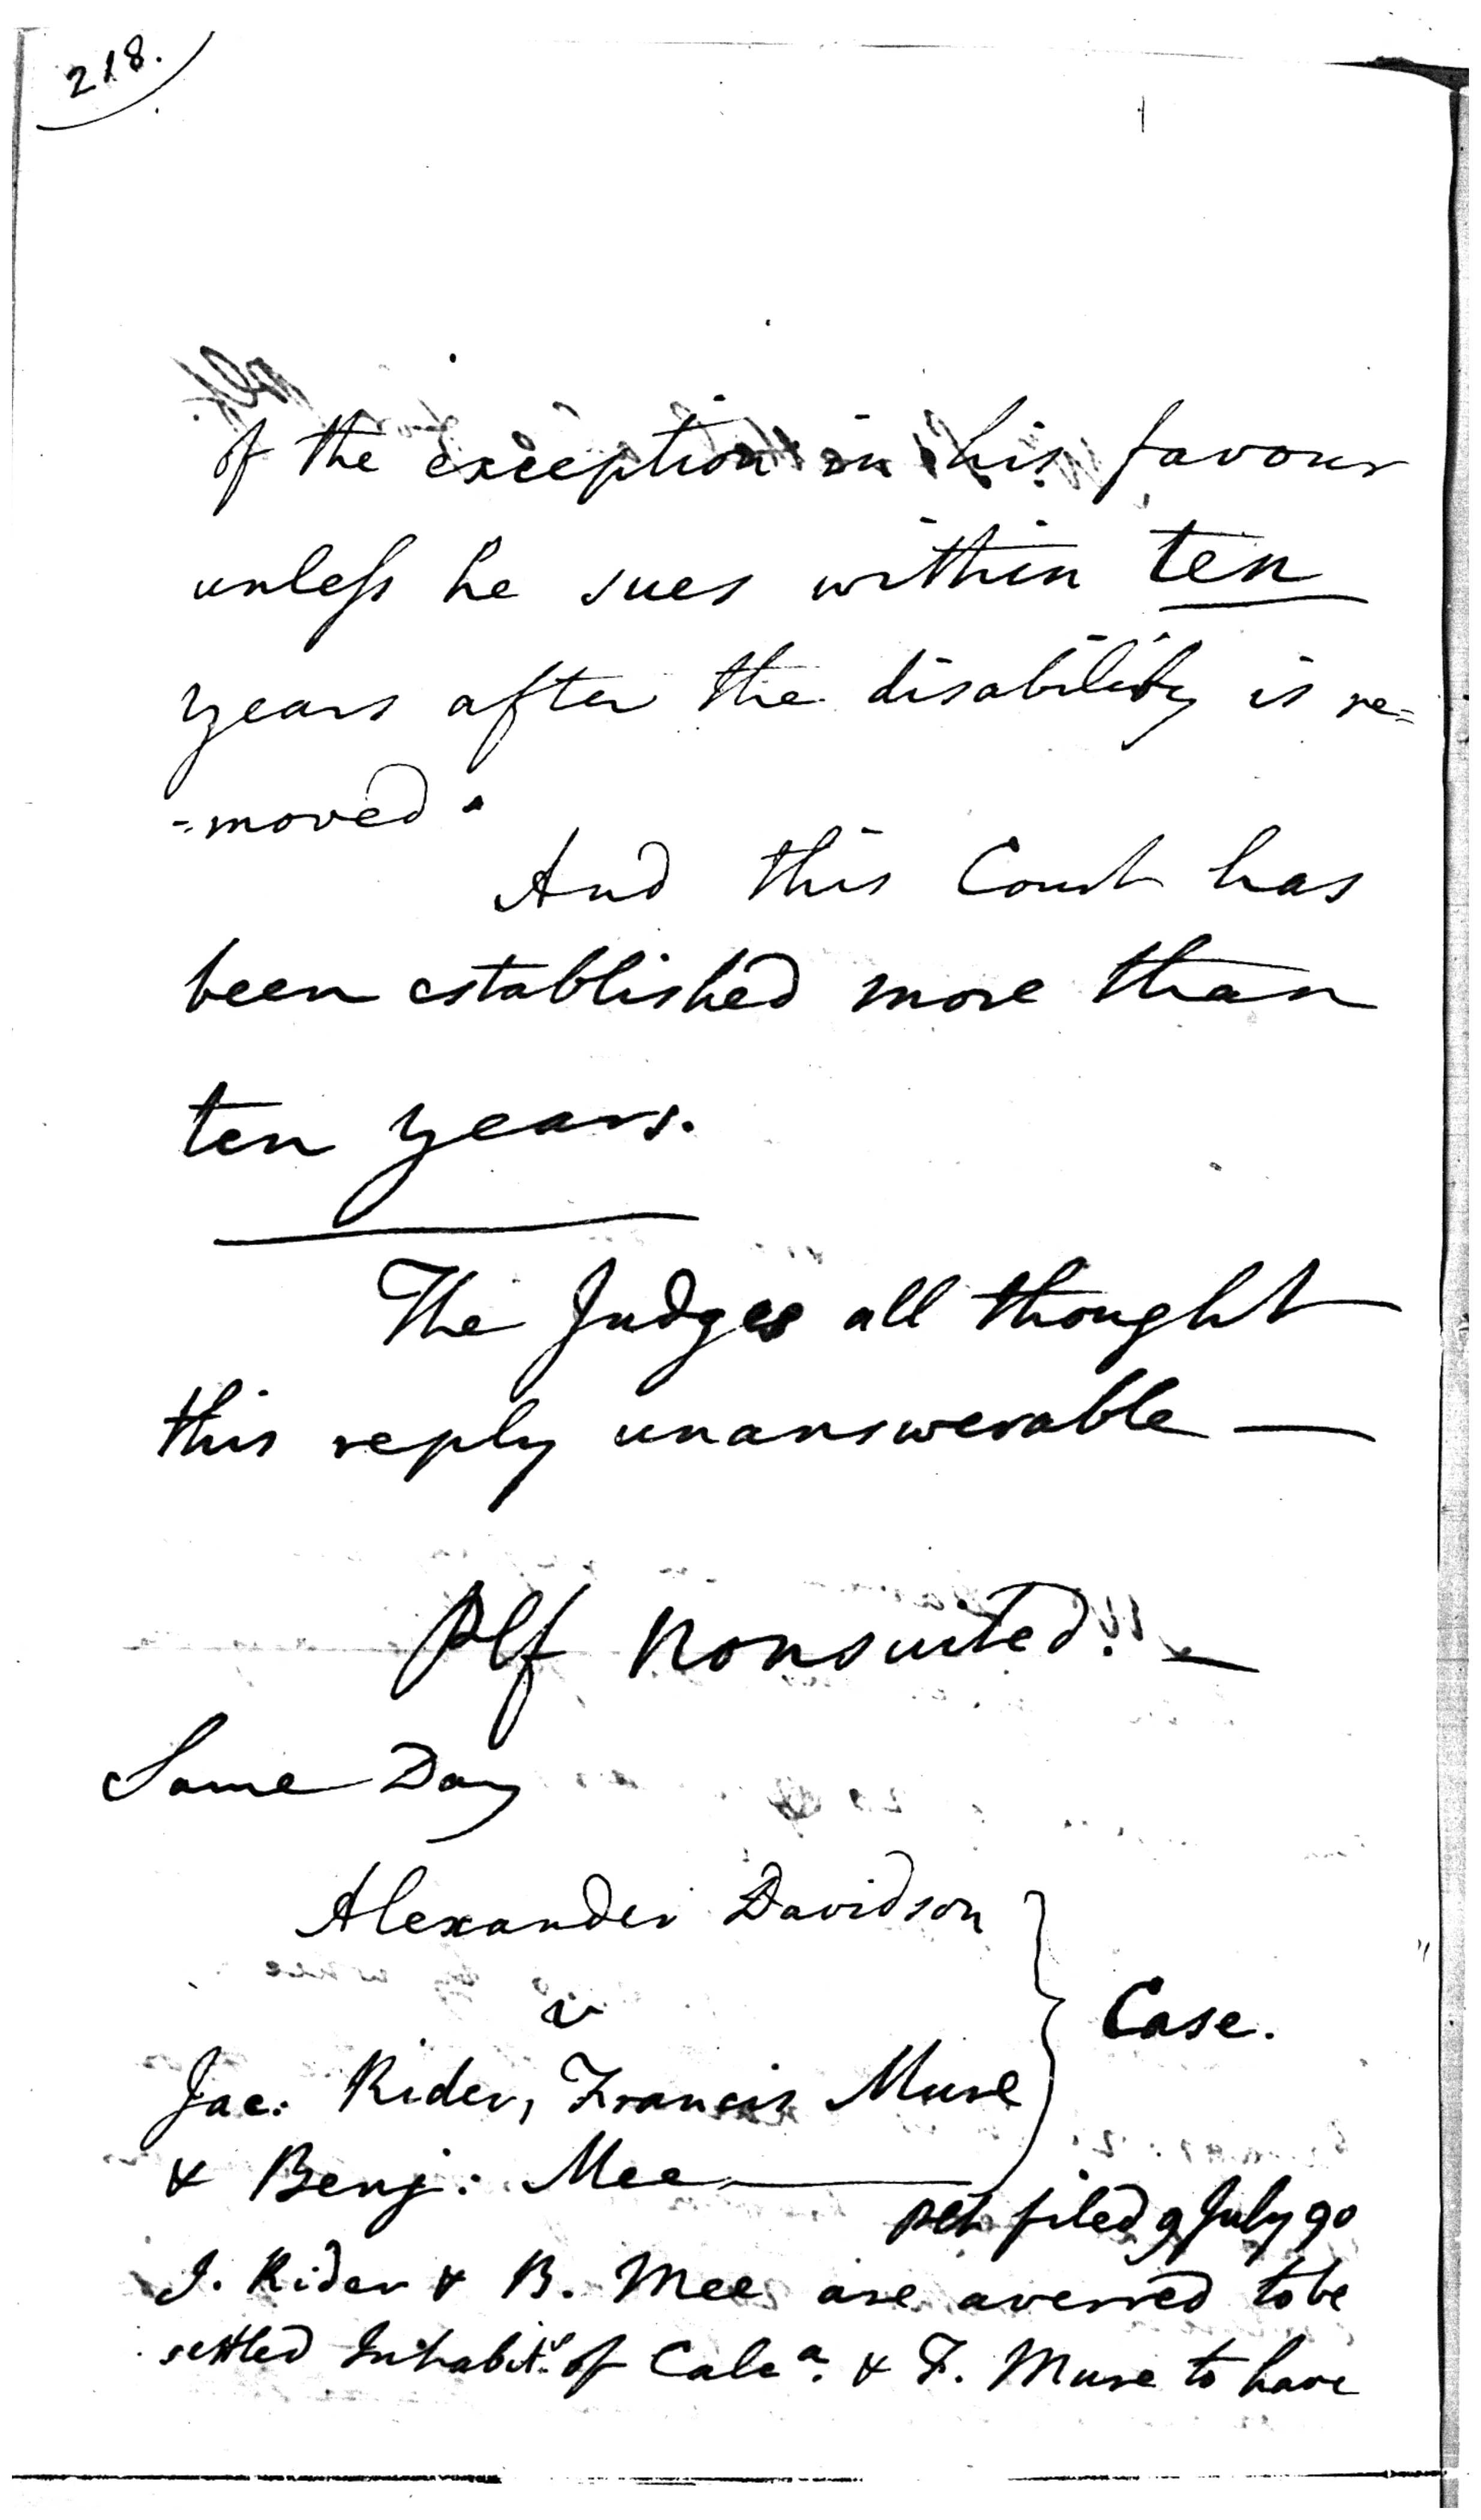 218.
of the exception in his favour
unless he sues within ten
years after the disability is re=
=moved.
And this Court has
been established more than
ten years.
The Judges all thought
this reply unanswerable —
Plf nonsuited. —
Same Day
Alexander Davidson
v
Jac: Rider, Francis Mure
Case.
& Benj: Mee
pet filed 9 July 90
J. Rider & B. Mee are averred to be
settled Inhabits. of Calca. & F. Mure to have